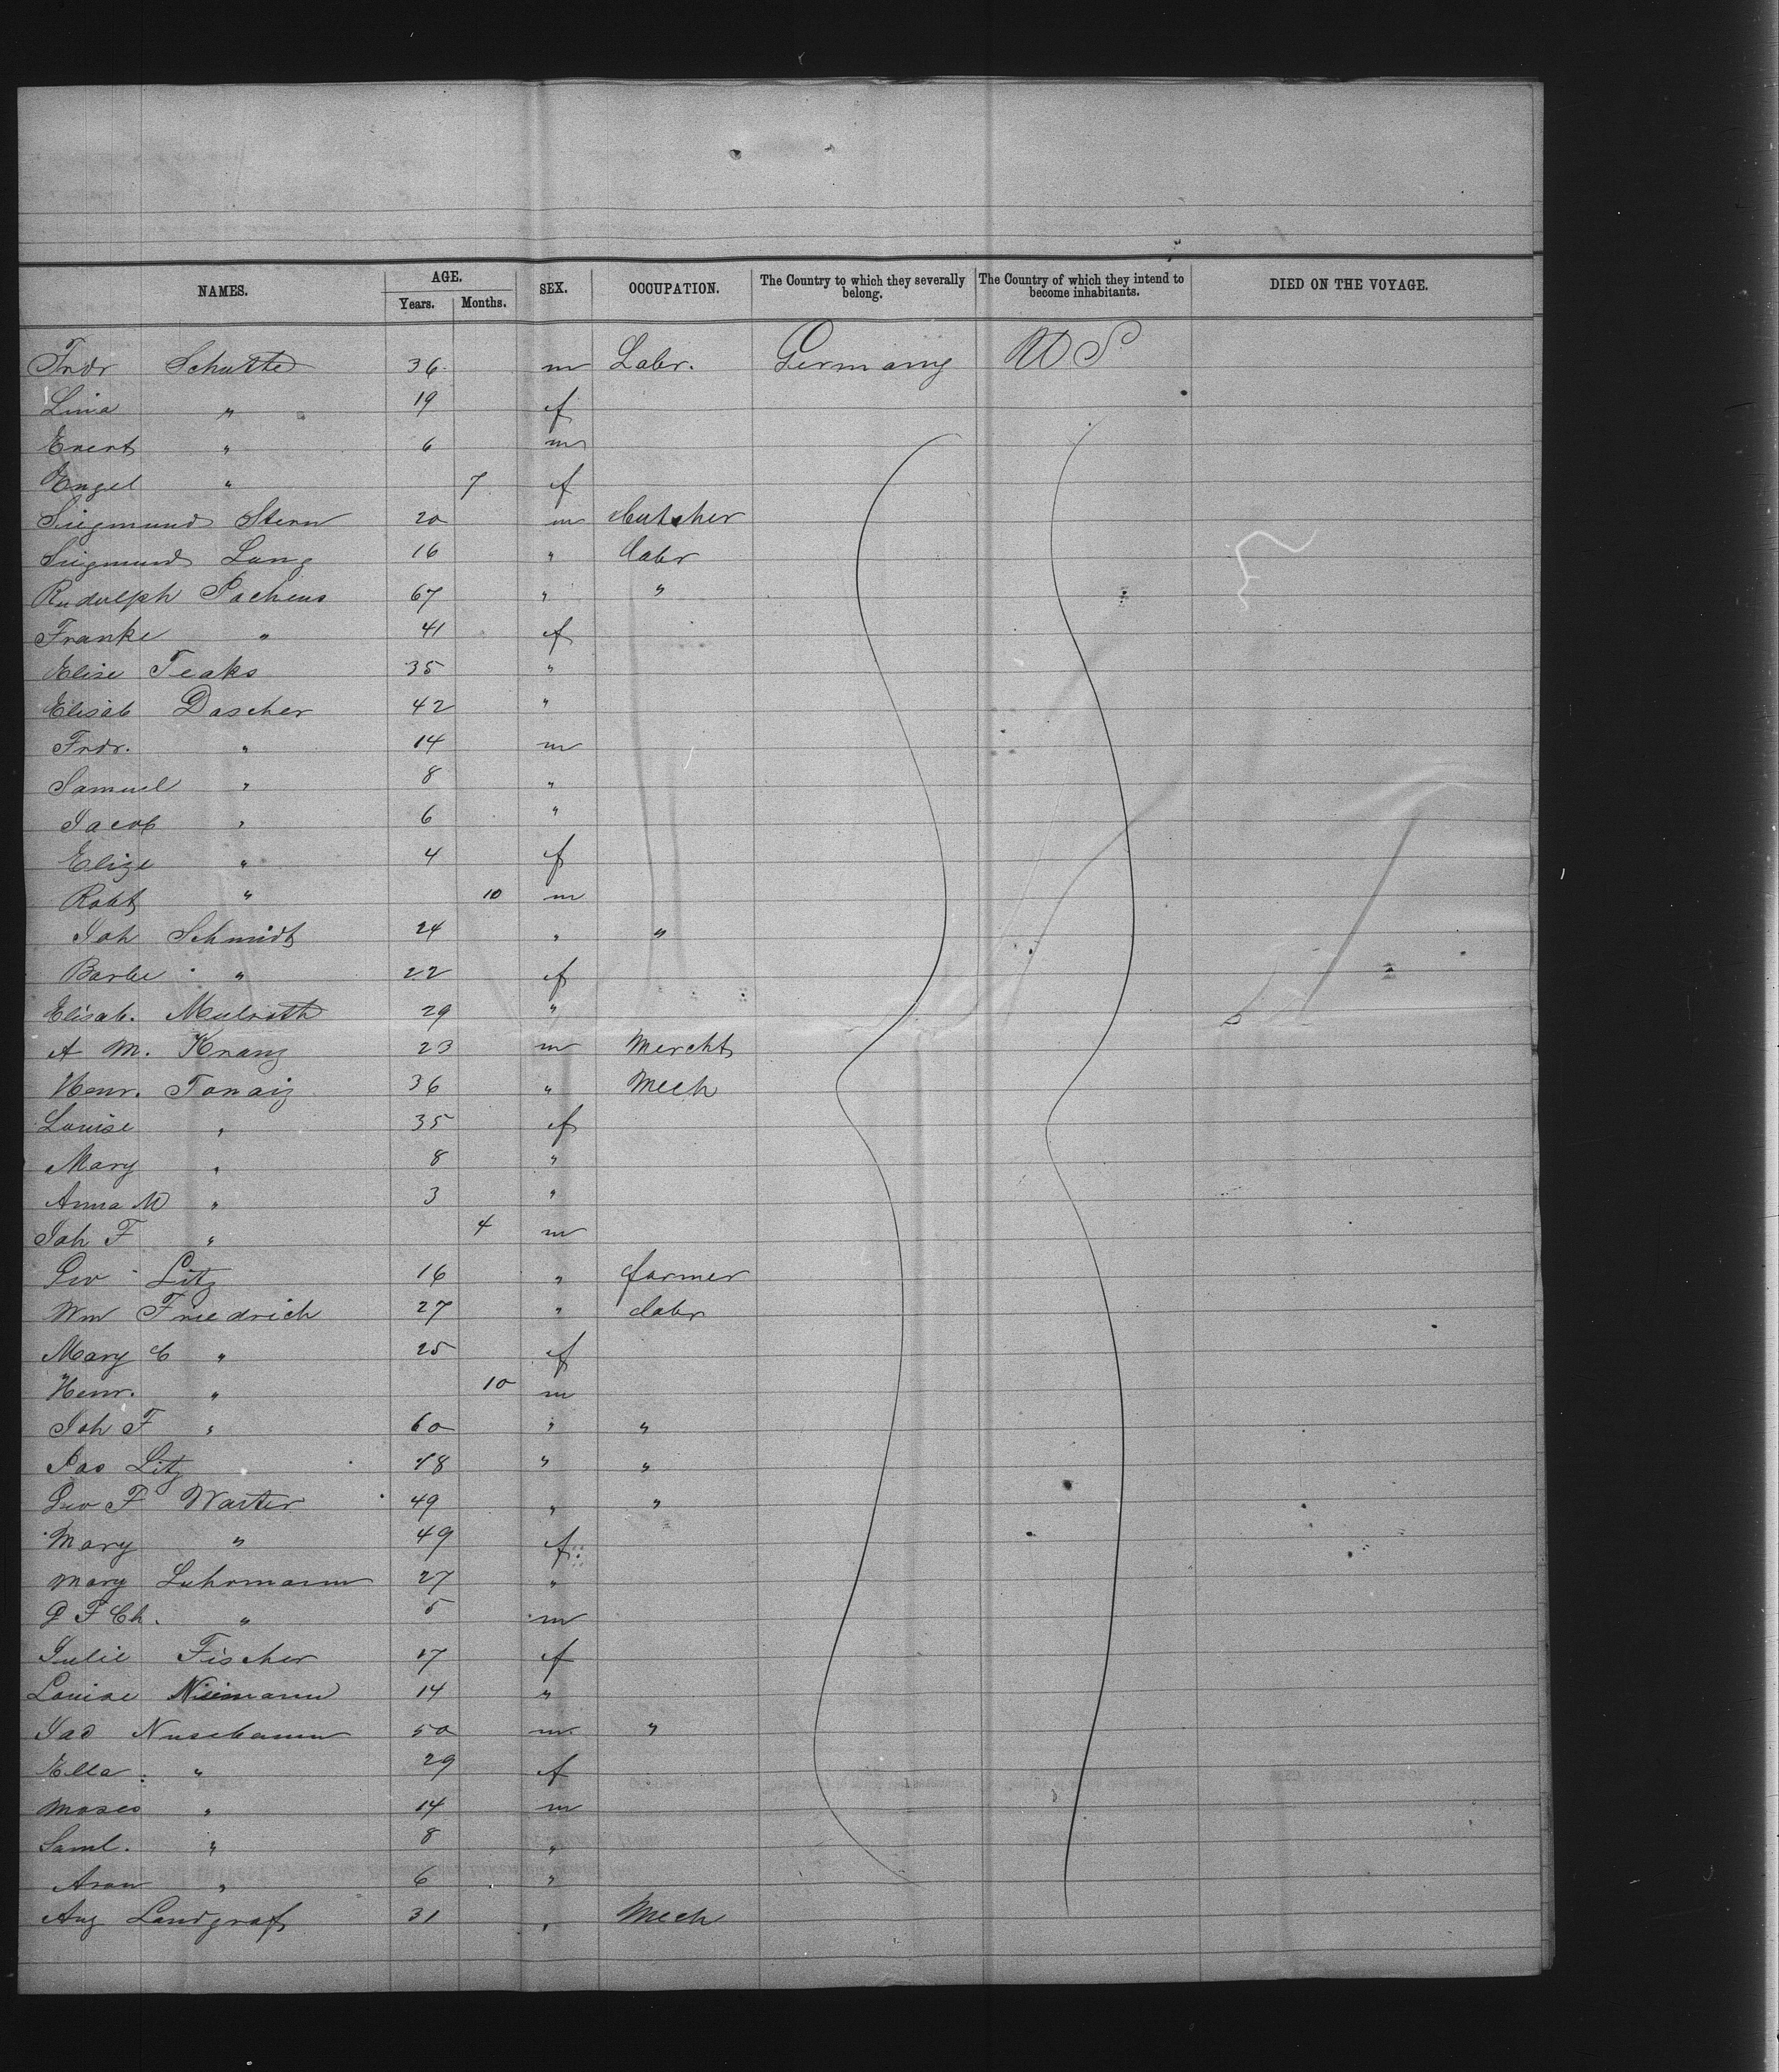 NAMES. AGE. Years. Months. SEX. OCCUPATION. The Country to which they severally belong. The Country of which they intend to become inhabitants. DIED ON THE VOYAGE.
Frdr Schutte 36 m Labr. Germany U S
Lina " 19 f
Evert " 6 m
Engel " 7 f
Siegmund Stern 20 m butcher
Siegmund Lang 16 " labr
Rudolph Pacheus 67 " "
Franke " 41 f
Elise Teaks 35 "
Elisab Dascher 42 "
Frdr. " 14 m
Samuel " 8 "
Jacob " 6 "
Elize " 4 f
Robt " 10 m
Joh Schmidt 24 " "
Barbe " 22 f
Elisab. 29 "
A M. Kranz 23 m Mercht
Henr. 36 " Mech
Louise " 35 f
Mary " 8 "
Anna M " 3 "
Joh F " 4 m
Geo Litz 16 " farmer
Wm Friedrich 27 " labr
Mary C " 25 f
Henr. " 10 m
Joh F " 60 " "
Litz 18 " "
Geo F Warter 49 " "
Mary " 49 f
Mary Luhrmann 27 "
G F Ch. " 5 m
Julie Fischer 17 f
Louise Niemann 14 "
Nusebaum 50 m "
Ella " 29 f
Moses " 14 m
Saml. " 8 "
Aron " 6 "
Aug Landgraf 31 " Mech